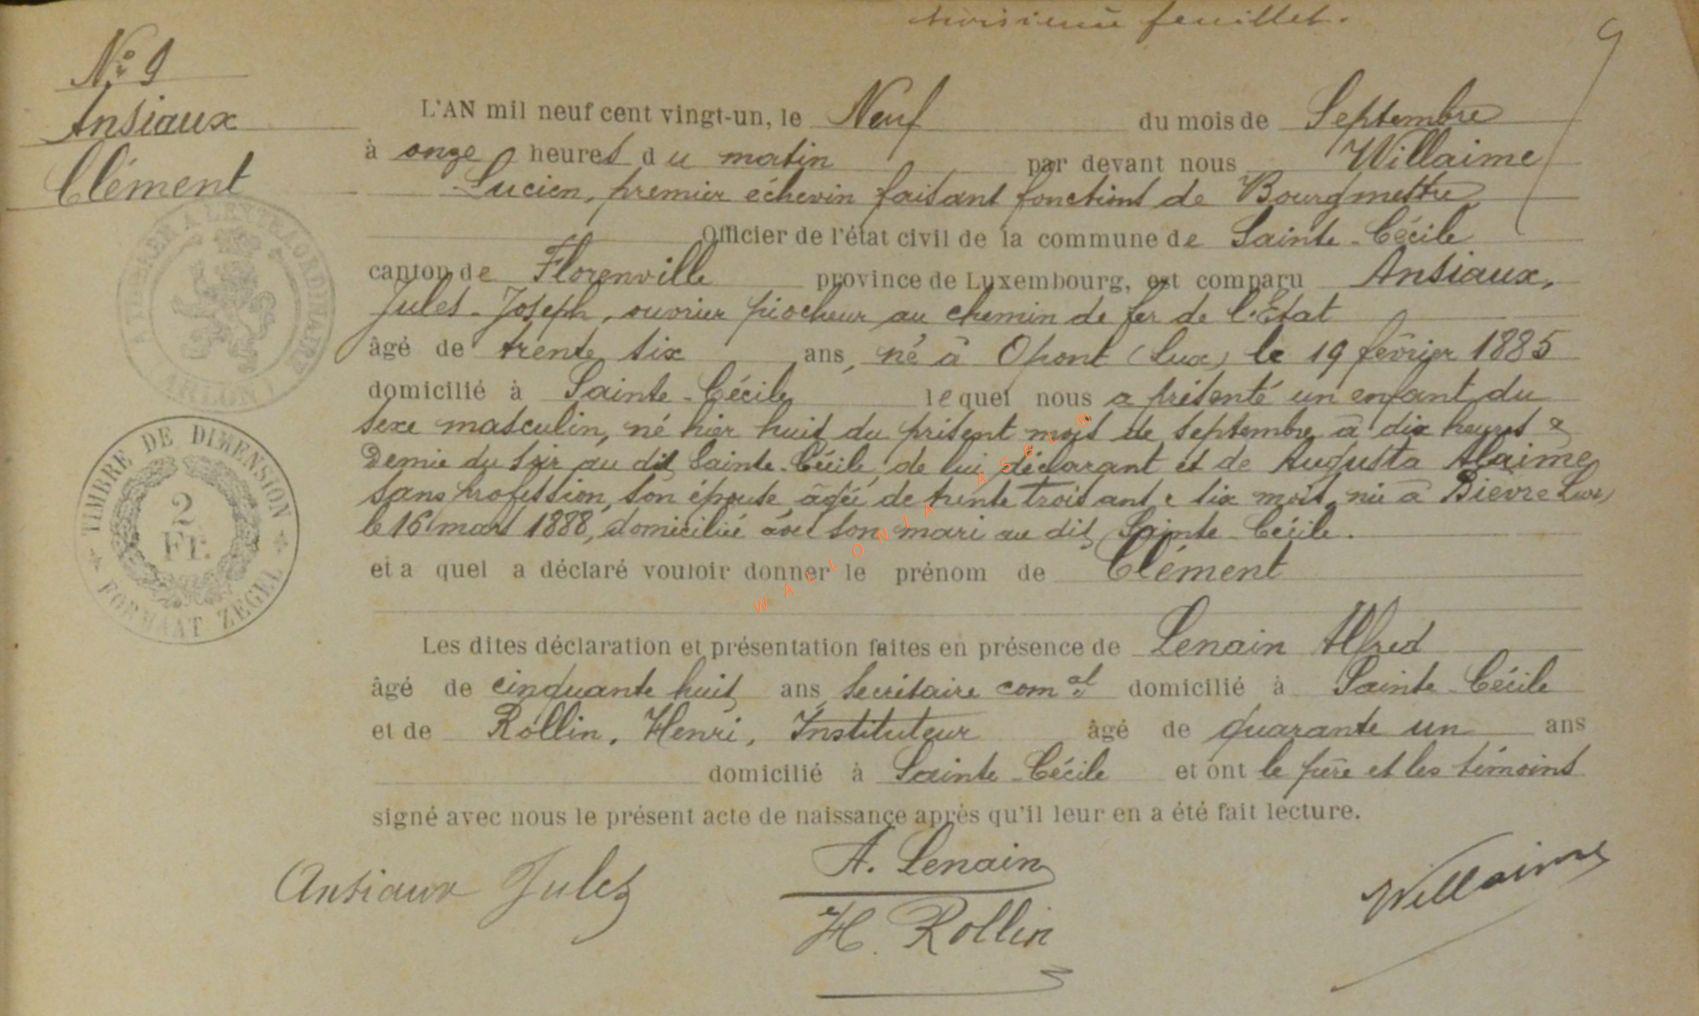 troisième feuillet.
9
N° 9
Ansiaux
Clément
L'AN mil neuf cent vingt-un, le Neuf du mois de Septembre
à onze heures du matin par devant nous Willaime
Lucien, premier échevin faisant fonctions de Bourgmestre
Officier de l'état civil de la commune de Sainte-Cécile
canton de Florenville province de Luxembourg, est comparu Ansiaux,
Jules-Joseph, ouvrier piocheur au chemin de fer de l'Etat
âgé de trente six ans, né à Opont (Lux) le 19 février 1885
domicilié à Sainte-Cécile lequel nous a présenté un enfant du
sexe masculin, né hier huit du présent mois de septembre à dix heures &
demie du soir au dit Sainte-Cécile, de lui déclarant et de Augusta Alaime
sans profession, son épouse âgée de trente trois ans & six mois, née à Bievre Lux)
le 16 mars 1888, domiciliée avec son mari au dit Sainte-Cécile.
et a quel a déclaré vouloir donner le prénom de Clément
Les dites déclaration et présentation faites en présence de Lenain Alfred
âgé de cinquante huit ans, Secrétaire comal domicilié à Sainte-Cécile
et de Rollin, Henri, Instituteur âgé de quarante un ans
domicilié à Sainte-Cécile et ont le père et les témoins
signé avec nous le présent acte de naissance après qu'il leur en a été fait lecture.
Ansiaux Jules
A. Lenain
H. Rollin
Willaime
A TIMBRER A L'EXTRAORDINAIRE
(ARLON)
TIMBRE DE DIMENSION
2
Fr.
FORMAAT ZEGEL
WALLONIA ASBL